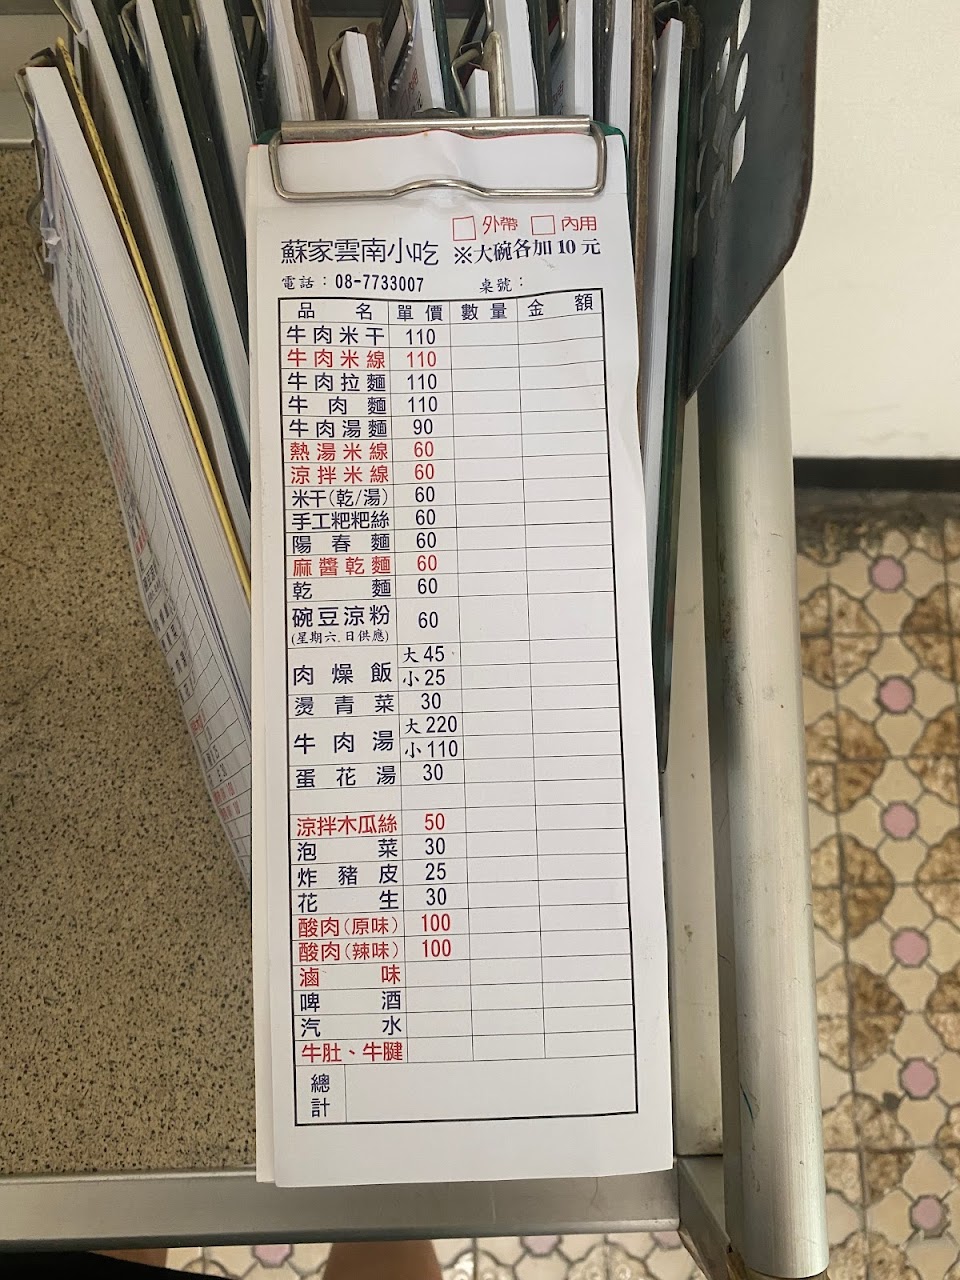 □ 外帶 □ 內用
蘇家雲南小吃 ※大碗各加10元
電話：08-7733007 桌號：
品名 單價 數量 金額
牛肉米干 110
牛肉米線 110
牛肉拉麵 110
牛肉麵 110
牛肉湯麵 90
熱湯米線 60
涼拌米線 60
米干(乾/湯) 60
手工粑粑絲 60
陽春麵 60
麻醬乾麵 60
乾麵 60
碗豆涼粉 60
(星期六.日供應)
肉燥飯 大45
小25
燙青菜 30
牛肉湯 大220
小110
蛋花湯 30
涼拌木瓜絲 50
泡菜 30
炸豬皮 25
花生 30
酸肉(原味) 100
酸肉(辣味) 100
滷味
啤酒
汽水
牛肚、牛腱
總計